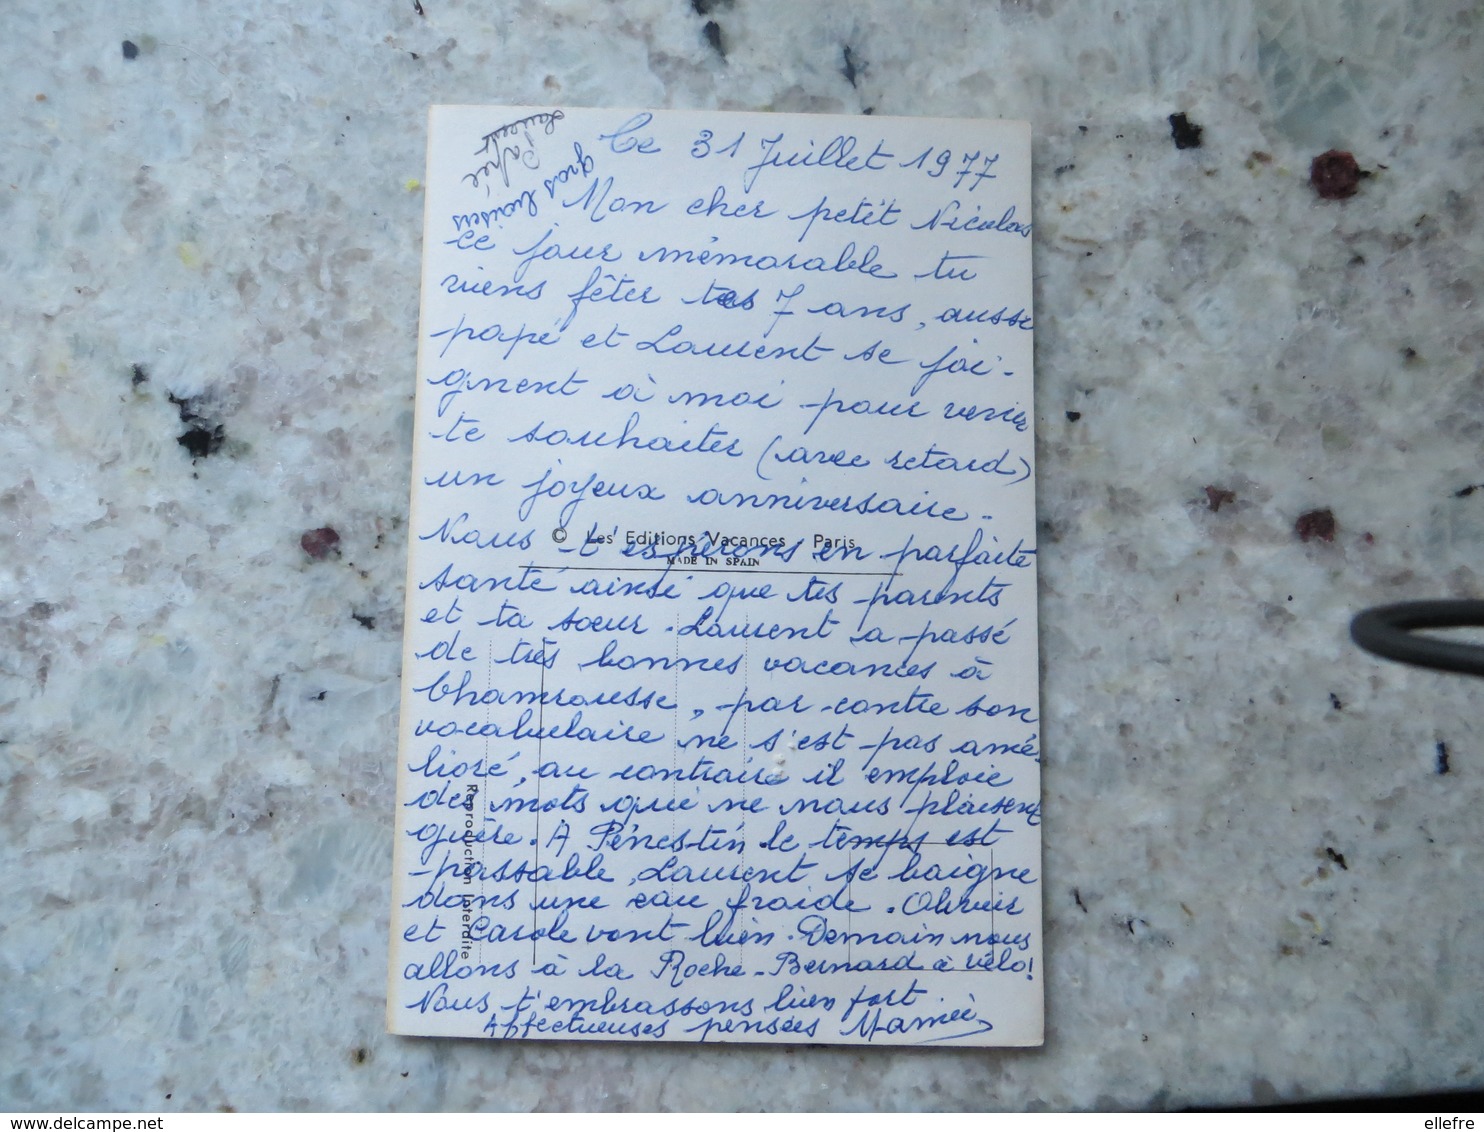 Ce 31 Juillet 1977
Mon cher petit Nicolas
ce jour mémorable tu
viens fêter tes 7 ans, aussi
papé et Laurent se joi-
gnent à moi pour venir
te souhaiter (avec retard)
un joyeux anniversaire.
Nous t'espérons en parfaite
santé ainsi que tes parents
et ta soeur. Laurent a passé
de très bonnes vacances à
Chamrousse, par contre son
vocabulaire ne s'est pas amé-
lioré, au contraire il emploie
des mots qui ne nous plaisent
guère. A Pénestin le temps est
passable, Laurent se baigne
dans une eau froide. Olivier
et Carole vont bien. Demain nous
allons à la Roche-Bernard à vélo!
Nous t'embrassons bien fort.
Affectueuses pensées Mamée
gros baisers
Papée
Laurent
© Les Editions Vacances Paris
MADE IN SPAIN
Reproduction Interdite
www.delcampe.net
ellefre